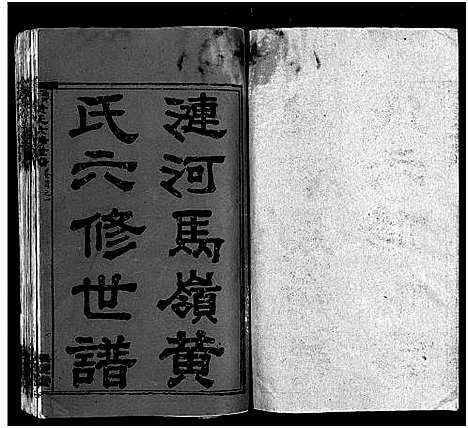 漣河馬嶺黄
氏六修世譜